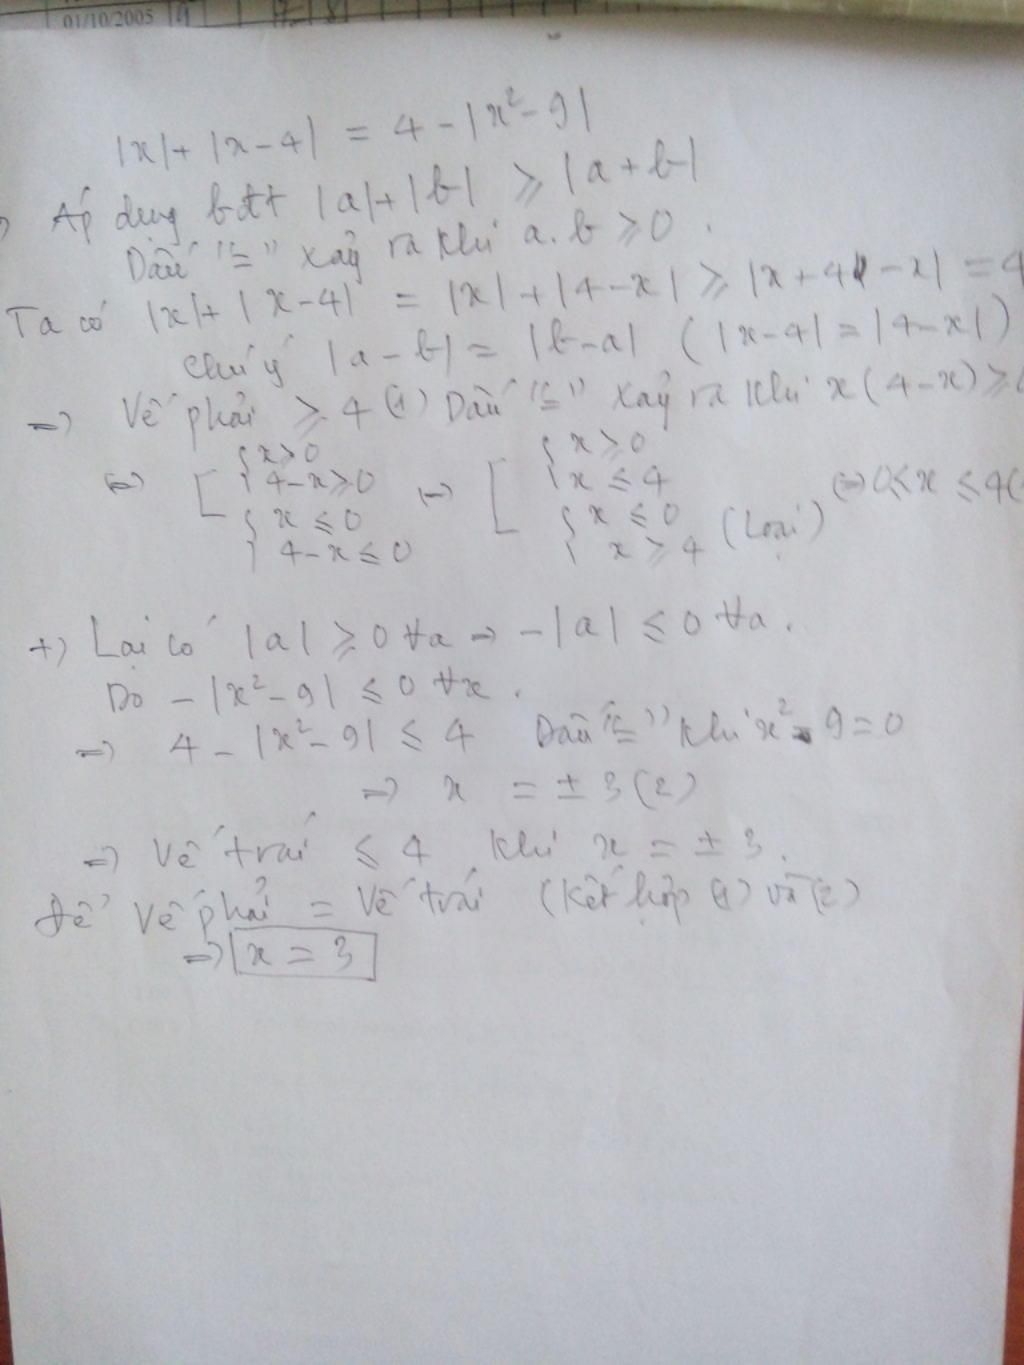 01/10/2005
|x| + |x-4| = 4 - |x² - 9|
Áp dụng bđt |a|+|b| ≥ |a+b|
Dấu "=" xảy ra khi a.b ≥ 0.
Ta có |x| + |x-4| = |x| + |4-x| ≥ |x+4-x| = 4
chú ý |a-b| = |b-a| (|x-4| = |4-x|)
=> Vế phải ≥ 4 (1) Dấu "=" xảy ra khi x(4-x) ≥
<=> [ { x ≥ 0 4-x ≥ 0 { x ≤ 0 4-x ≤ 0 <=> [ { x ≥ 0 x ≤ 4 { x ≤ 0 x ≥ 4 (Loại) <=> 0 ≤ x ≤ 4
+) Lại có |a| ≥ 0 ∀a => -|a| ≤ 0 ∀a.
Do -|x² - 9| ≤ 0 ∀x.
=> 4 - |x² - 9| ≤ 4 Dấu "=" khi x² - 9 = 0
=> x = ± 3 (2)
=> Vế trái ≤ 4 khi x = ± 3.
Để Vế phải = Vế trái (Kết hợp (1) và (2)
=> x = 3